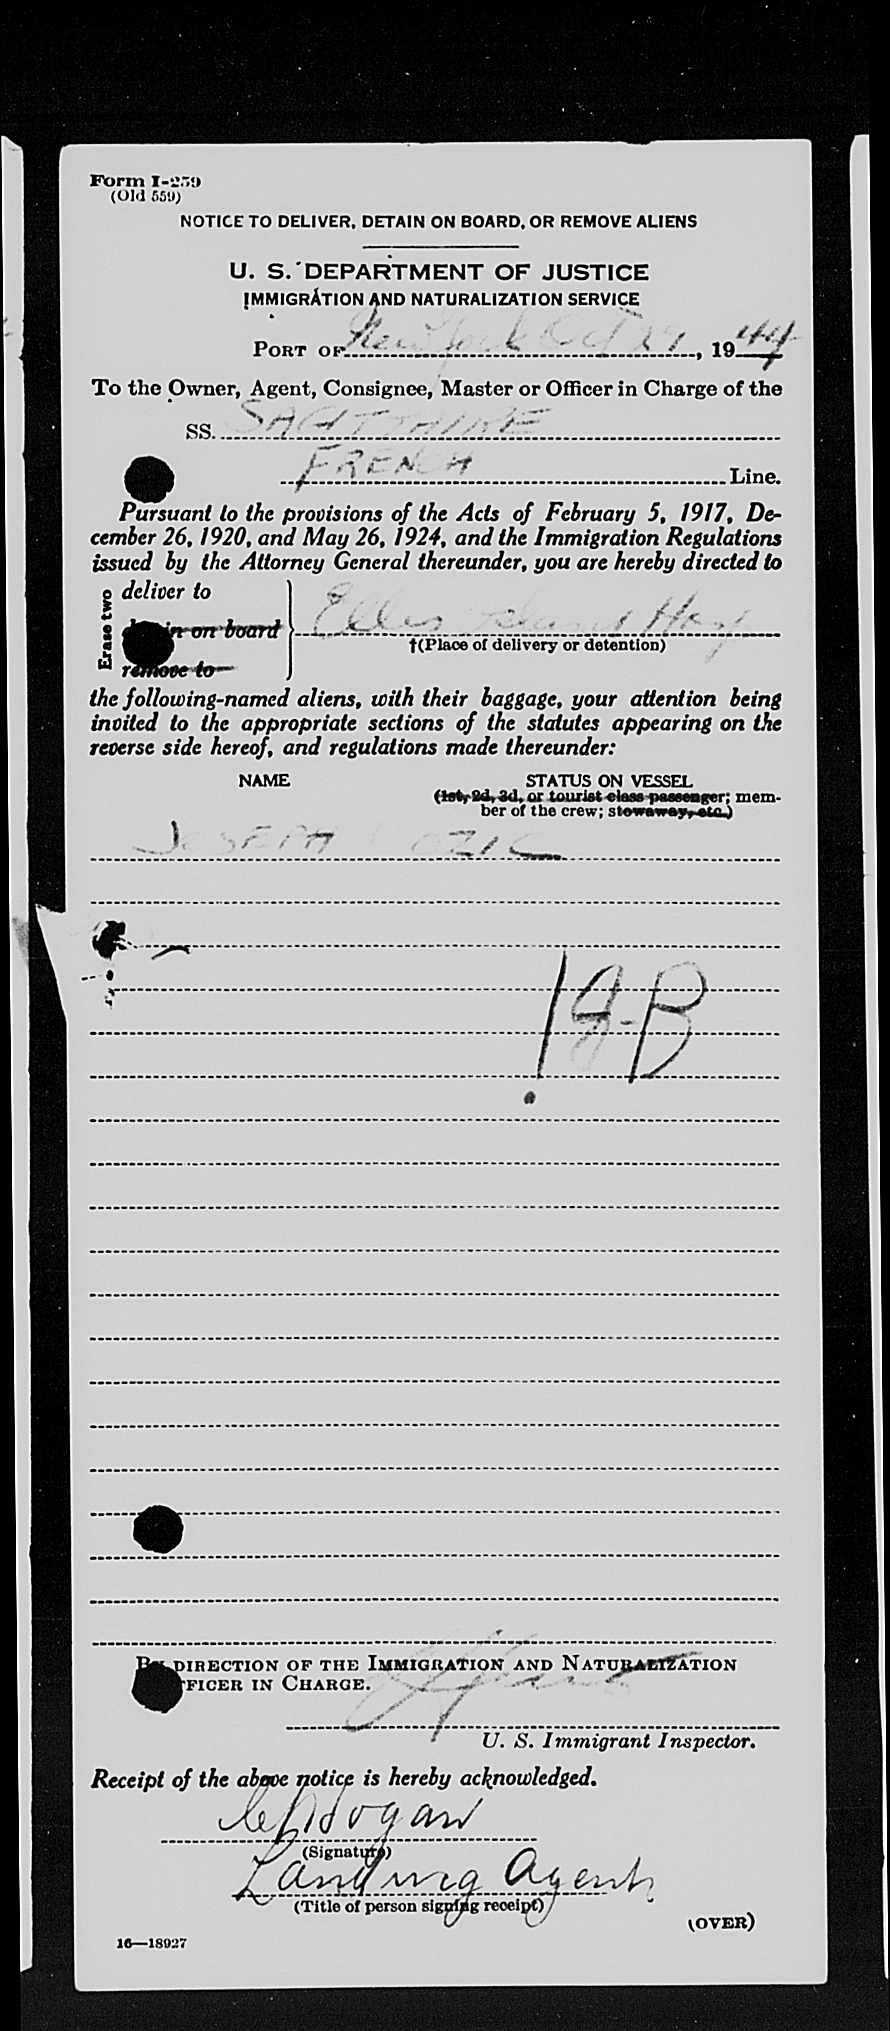 Form I-259
(Old 559)
NOTICE TO DELIVER, DETAIN ON BOARD, OR REMOVE ALIENS
U. S. DEPARTMENT OF JUSTICE
IMMIGRATION AND NATURALIZATION SERVICE
PORT OF New York Oct 27, 1944
To the Owner, Agent, Consignee, Master or Officer in Charge of the
SS. SAGITTAIRE
FRENCH Line.
Pursuant to the provisions of the Acts of February 5, 1917, De-
cember 26, 1920, and May 26, 1924, and the Immigration Regulations
issued by the Attorney General thereunder, you are hereby directed to
Erase two
deliver to
in on board
Ellis Island
†(Place of delivery or detention)
remove to
the following-named aliens, with their baggage, your attention being
invited to the appropriate sections of the statutes appearing on the
reverse side hereof, and regulations made thereunder:
NAME STATUS ON VESSEL
(1st, 2d, 3d, or tourist class passenger; mem-
ber of the crew; stowaway, etc.)
JOSEPH
BY DIRECTION OF THE IMMIGRATION AND NATURALIZATION
OFFICER IN CHARGE.
U. S. Immigrant Inspector.
Receipt of the above notice is hereby acknowledged.
(Signature)
Landing Agent
(Title of person signing receipt)
(OVER)
16—18927